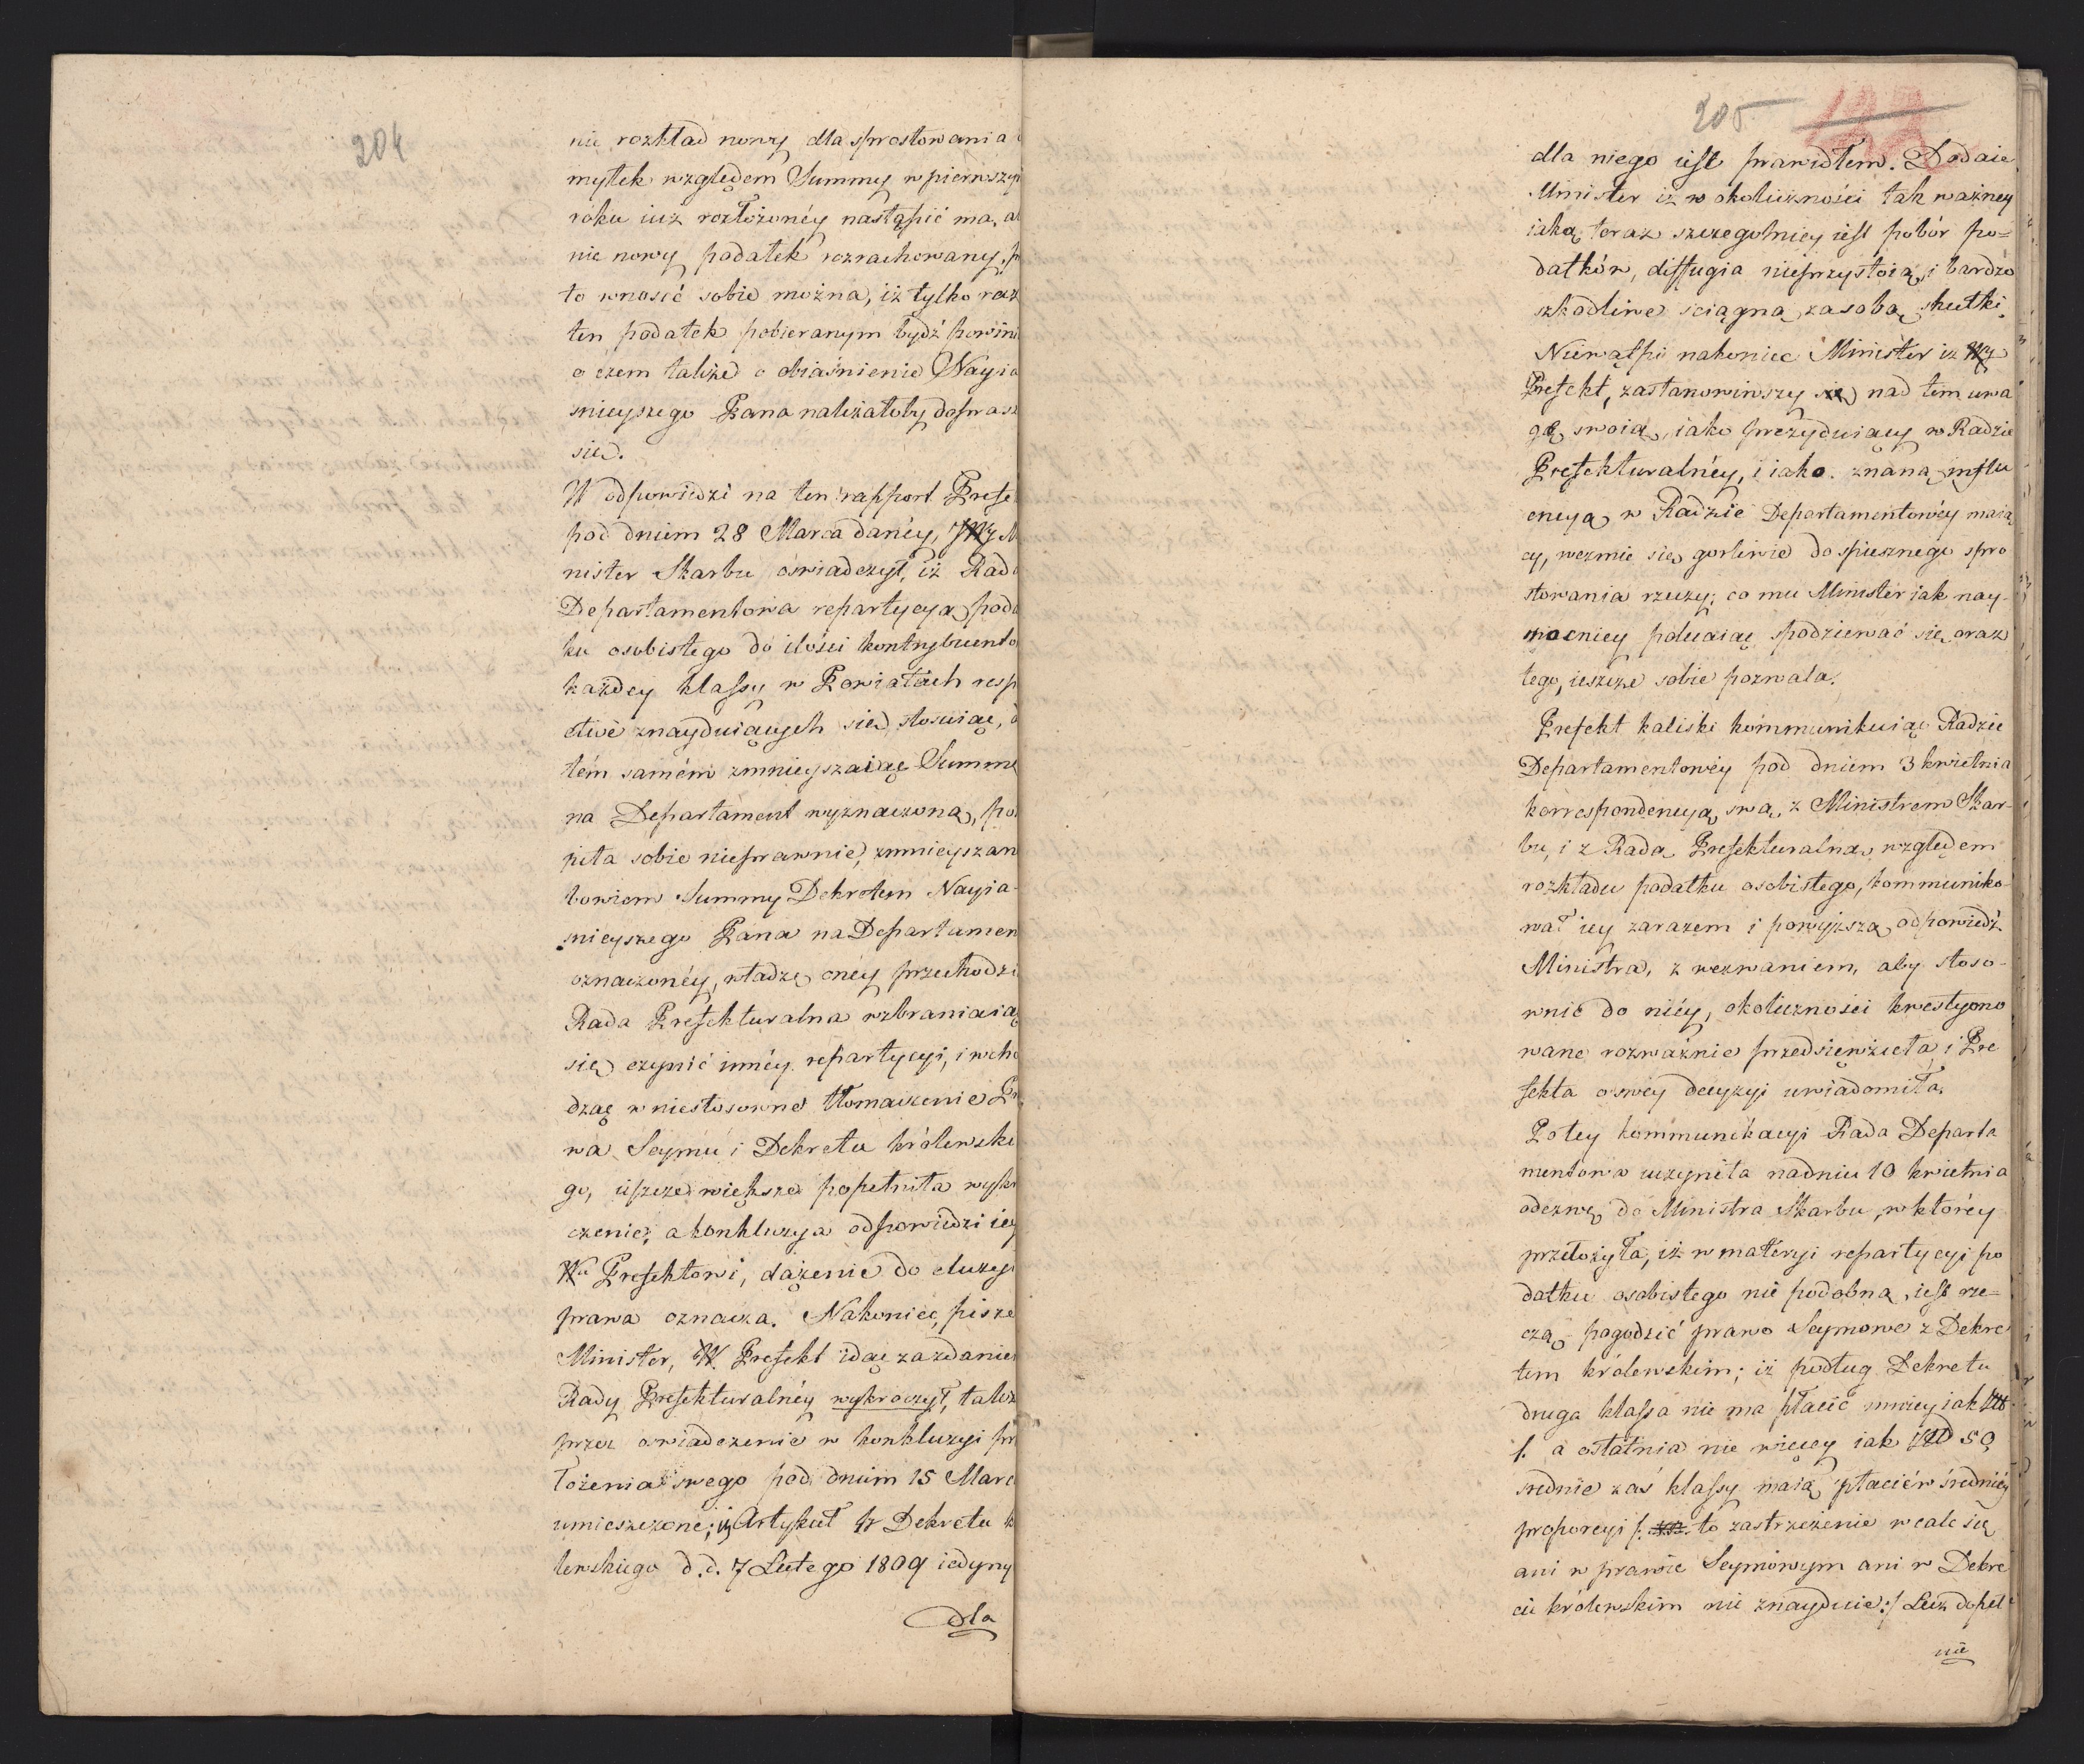 204
nie rozkład nowy dla sprostowania
myłek względem Summy w pierwszym
roku iuż rozłożonéy nastąpić ma, a
nie nowy podatek rozrachowany,
to wnosić sobie można, iż tylko raz
ten podatek pobieranym bydź powin
o czem także o obiaśnienie Nayia
snieyszego Pana należałoby doprasz
się.
W odpowiedzi na ten rapport Prefe
pod dniem 28 Marca danéy, JW M
nister Skarbu oświadczył, iż Rada
Departamentowa repartycyą poda
tku osobistego do ilości kontrybuento
każdey klassy w Powiatach resp
ctive znayduiących się stosuiąc,
tém samém zmnieyszaiąc Summę
na Departament wyznaczoną, po
piła sobie nieprawnie, zmnieyszan
bowiem Summy Dekretem Nayia-
snieyszego Pana na Departamen
oznaczonéy, władzę onéy przechodzi
Rada Prefekturalna wzbraniaiąc
się czynić innéy repartycyi, i wcho
dząc w niestosowne tłomaczenie Pr
wa Seymu i Dekretu królewskie
go, ieszcze większe popełniła wykro
czenie; a konkluzya odpowiedzi iey
Wu Prefektowi, dążenie do eluzyi
prawa oznacza. Nakoniec, pisze
Minister, W. Prefekt idąc za zdaniem
Rady Prefekturalnéy wykroczył, także
przez oswiadczenie w konkluzyi prze
łożenia swego pod dniem 15 Marc
umieszczone; iż Artykuł 4 Dekretu k
lewskiego d. d. 7 Lutego 1809 iedyny
dla
205
dla niego iest prawidłem. Dodaie
Minister iż w okoliczności tak ważney
iaką teraz szczegolniey iest pobór po=
datków, diffugia nieprzystoią, i bardzo
szkodliwe sciągną za sobą skutki.
Niewątpi nakoniec Minister iż W
Prefekt, zastanowiwszy się nad tem uwa
gę swoią, iako prezyduiący w Radzie
Prefekturalnéy, i iako znaną influ
encyą w Radzie Departamentowéy maią
cy, wezmie się gorliwie do spiesznego spro
stowania rzeczy; co mu Minister iak nay-
mocniey polecaiąc spodziewać się oraz
tego, ieszcze sobie pozwala.
Prefekt kaliski kommunikuiąc Radzie
Departamentowéy pod dniem 3 kwietnia
korrespondencyą swą, z Ministrem Skar-
bu, i z Radą Prefekturalną względem
rozkładu podatku osobistego, kommuniko-
wał iey zarazem i powyższą odpowiedź
Ministra, z wezwaniem, aby stoso-
wnie do niéy, okoliczności kwestyono
wane rozważnie przedsięwzięła i Pre
fekta o swey decyzyi uwiadomiła.
Po tey kommunikacyi Rada Departa
mentowa uczyniła na dniu 10 kwietnia
odezwę do Ministra Skarbu, w któréy
przełożyła, iż w matéryi repartycyi po
datku osobistego nie podobną iest rze-
czą pogodzić prawo Seymowe z Dekre
tem królewskim; iż podług Dekretu
druga klassa nie ma płacić mniey iak
f. a ostatnia nie więcey iak 50,
srednie zaś klassy maią płacić w średniéy
proporcyi /: to zastrzeżenie wcale się
ani w prawie Seymowym ani w Dekre
cie królewskim nie znayduie :/ Lecz dopeł
nie